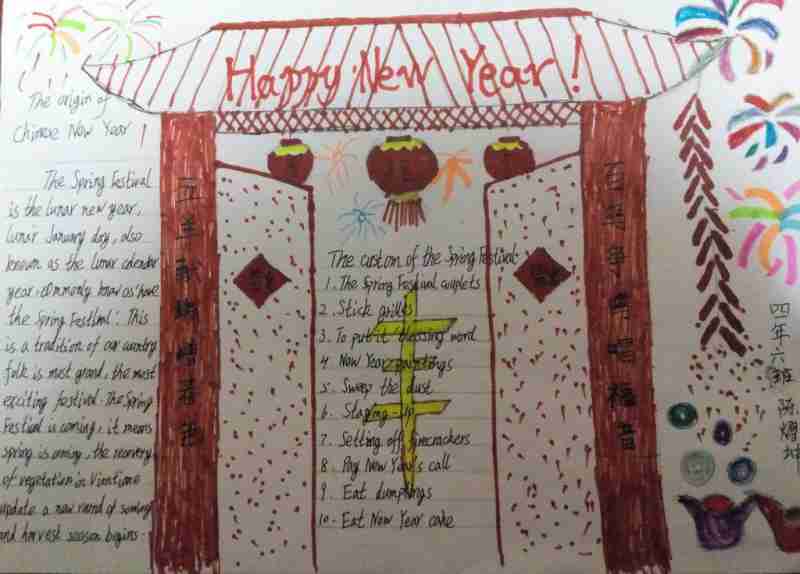 Happy New Year!
The origin of
Chinese New Year!
The Spring Festival
is the lunar new year,
lunar January day, also
known as the lunar calendar
year, commonly know as "have
the Spring Festival". This
is a tradition of our country
folk is most grand, the most
exciting festival. The Spring
Festival is coming, it means
spring is coming, the recovery
of vegetation on Vientiane
update a new round of
and harvest season begins.
五羊献瑞春色
The custom of the Spring Festival:
1. The Spring Festival couplets
2. Stick grilles
3. To put it blessing word
4. New Year paintings
5. Sweep the dust
6. Staying-up
7. Setting off firecrackers
8. Pay New Year's call
9. Eat dumplings
10. Eat New Year cake
百鸟争鸣唱福音
四年六班 陈熠坤